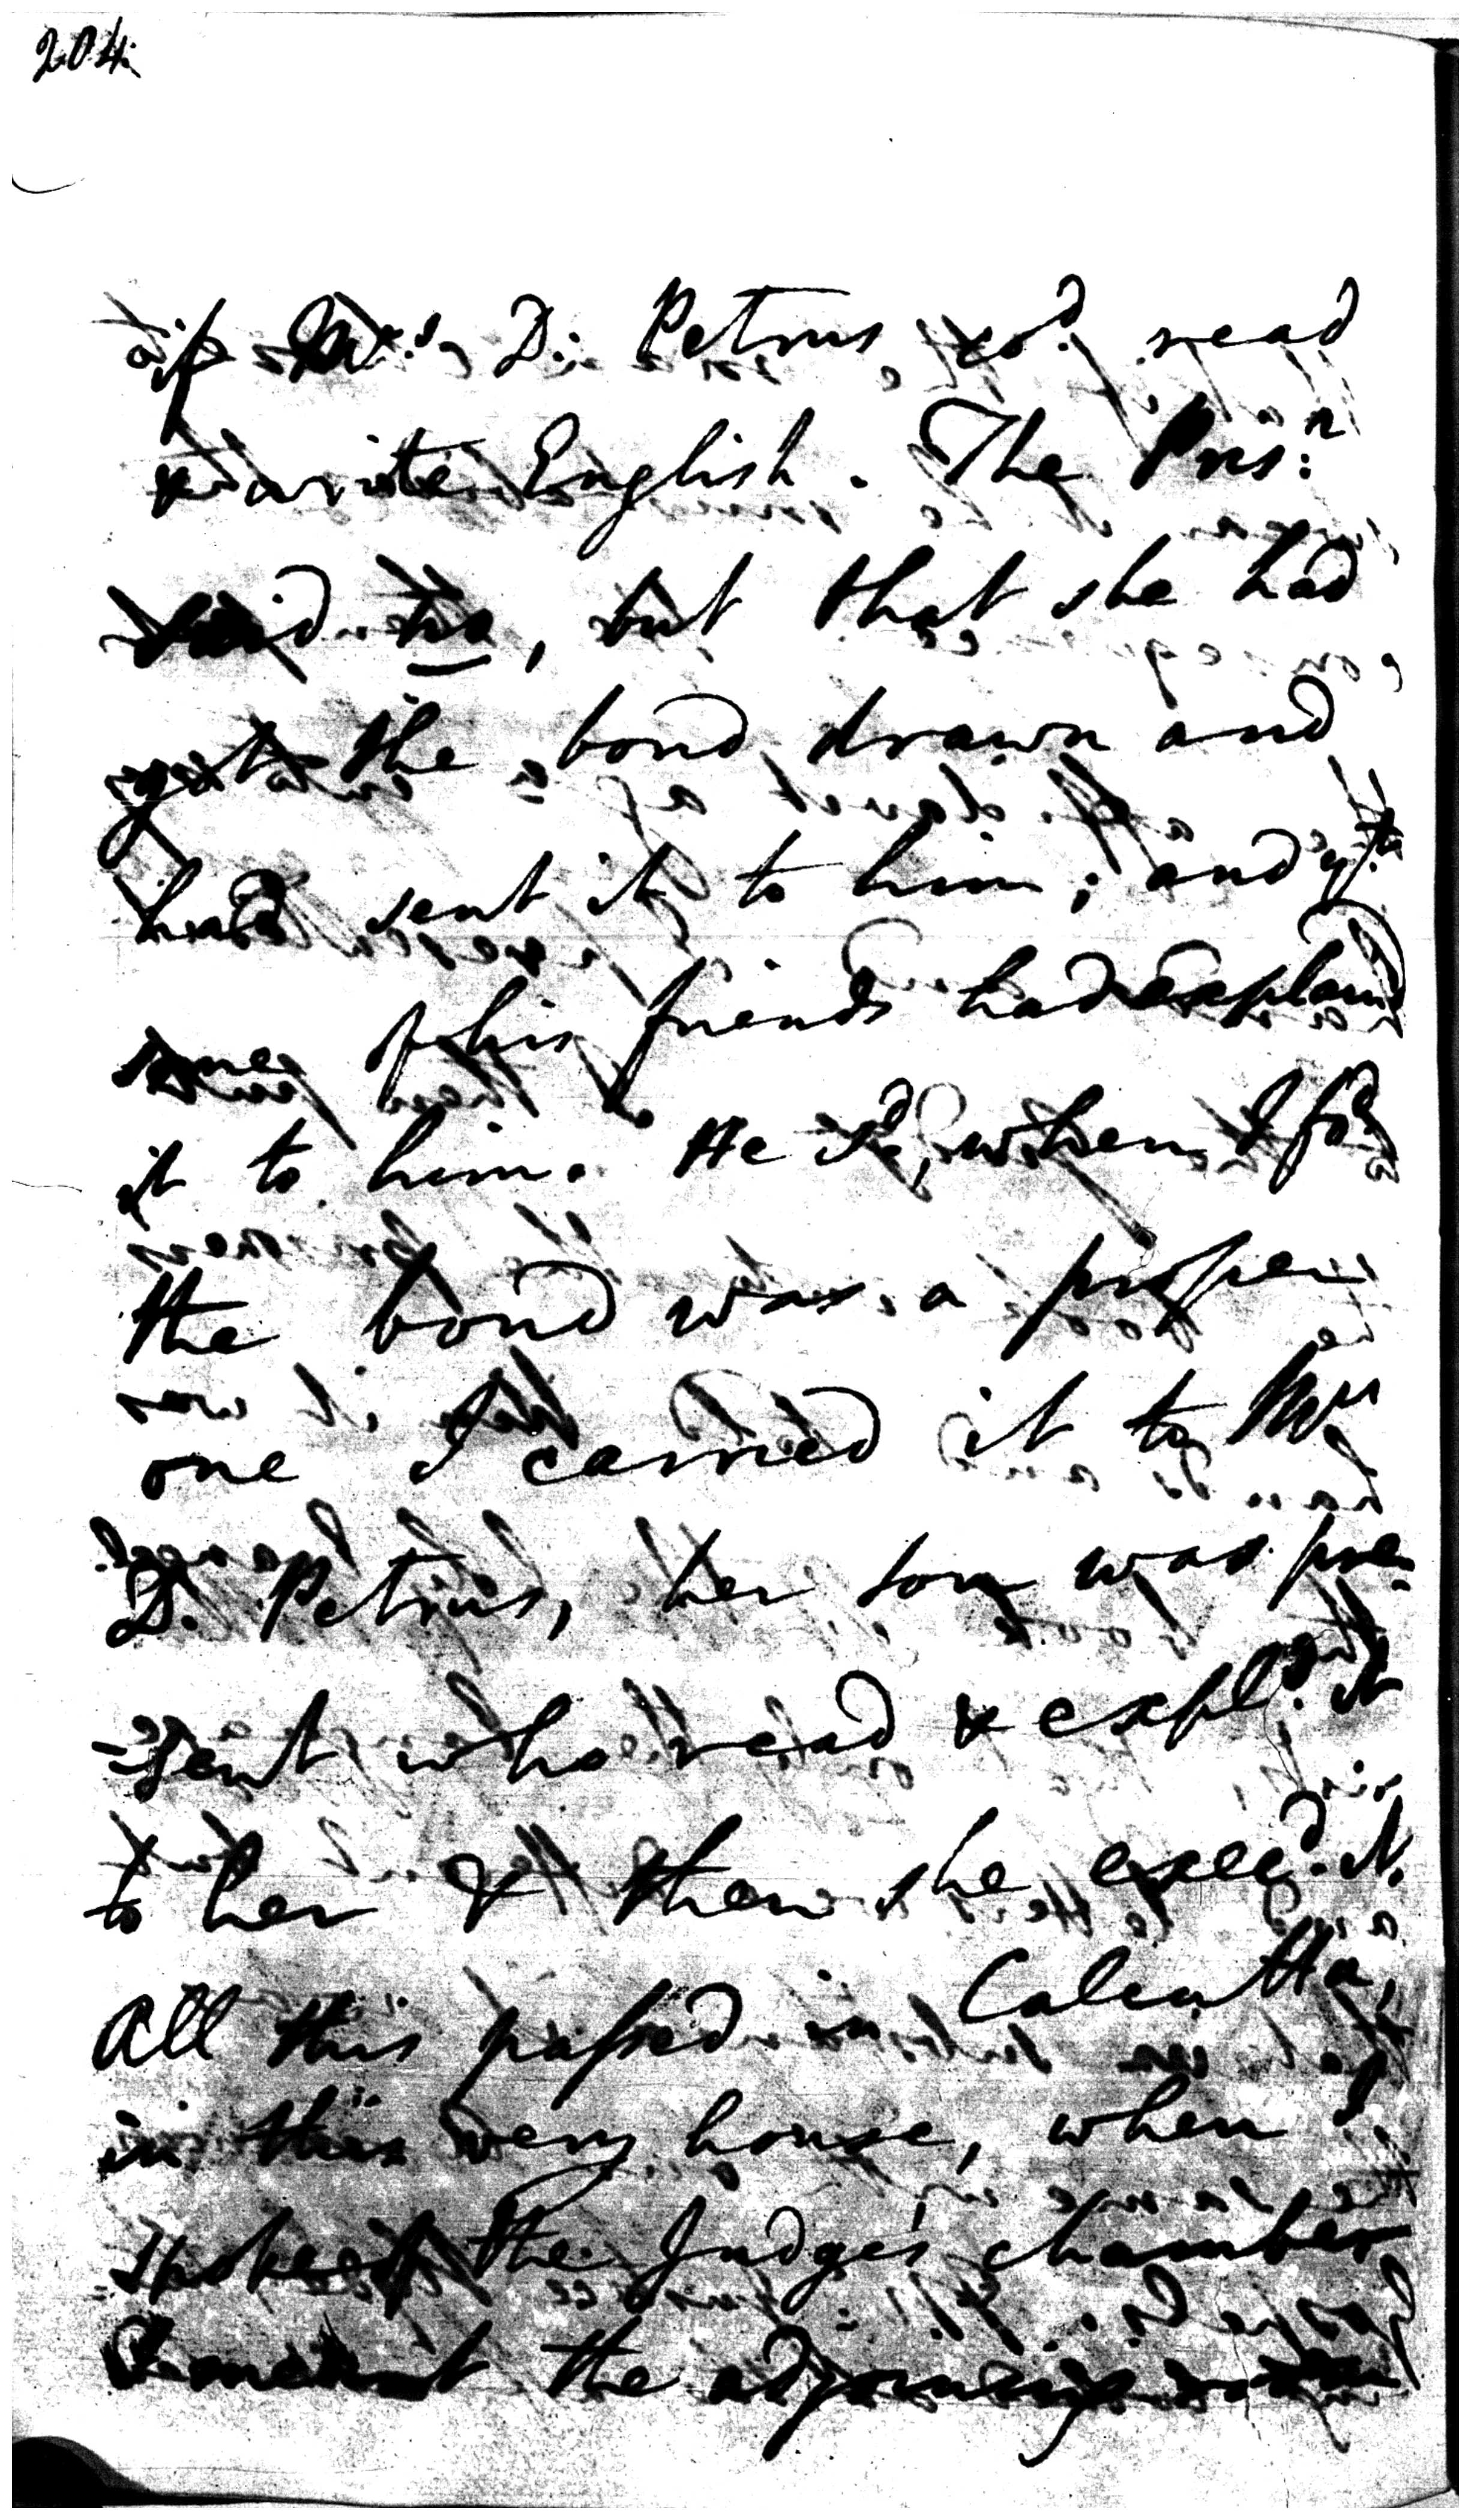 204.
if Mrs. D. Petrus cod. read
& write English. The Pris:r
said no, but that she had
got the bond drawn and
had sent it to him; and yt.
some of his friends had explaind
it to him. He sd, when I fod
the bond was a proper
one I carried it to Mrs
D. Petrus, her son was pre-
-sent who read & expld. it
to her & then she exeed. it.
All this passed in Calcutta,
in this very house, when I
spoke of the Judge's chamber
I meant the adjoining room